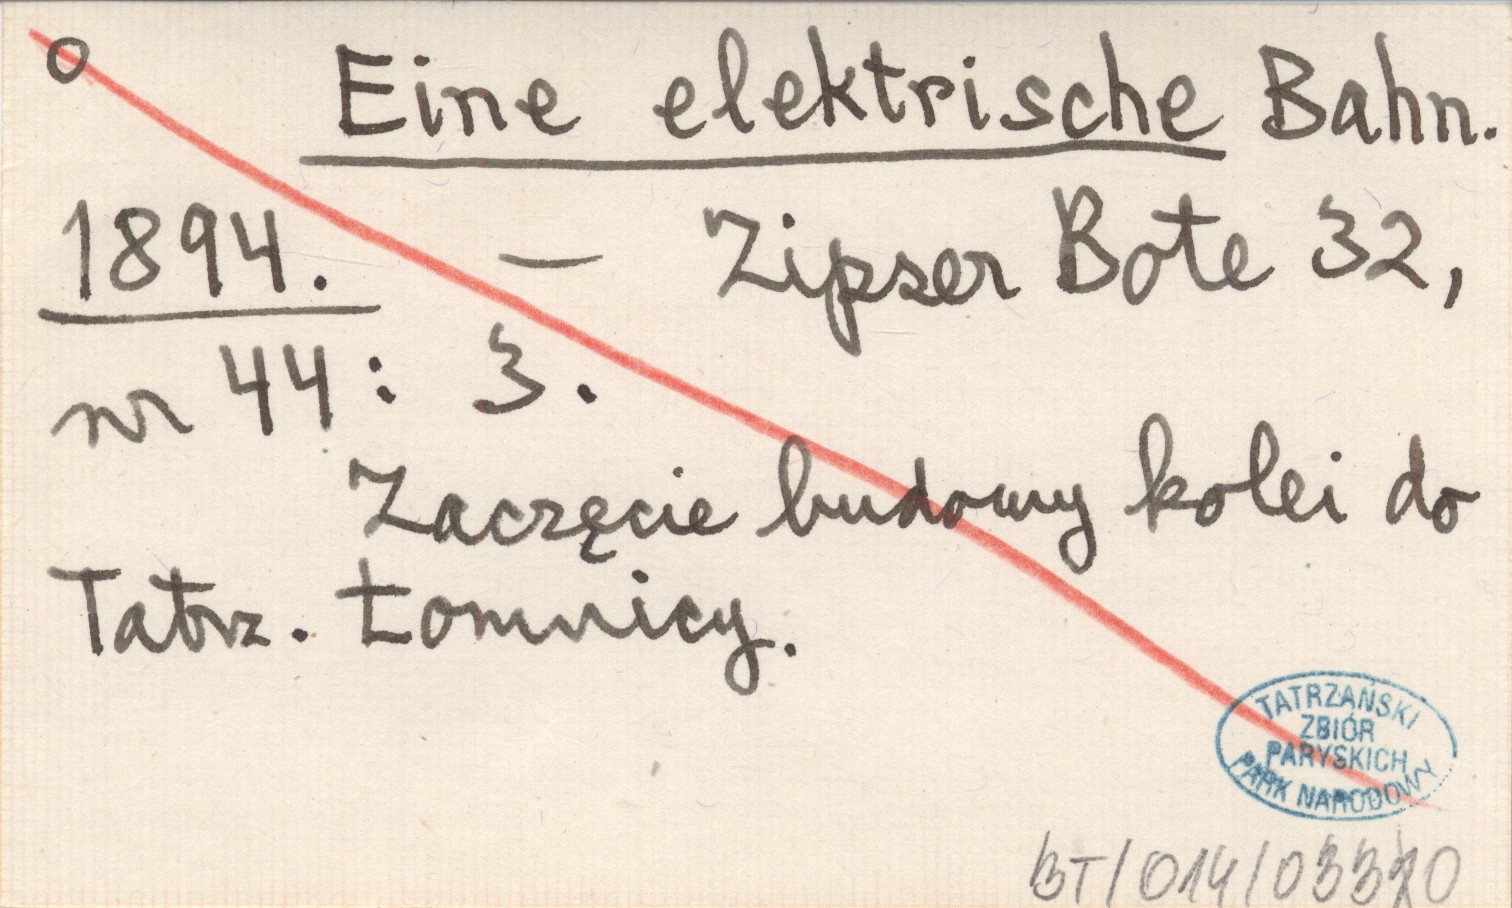 o Eine elektrische Bahn.
1894. — Zipser Bote 32,
nr 44: 3.
Zaczęcie budowy kolei do
Tatrz. Łomnicy.
TATRZAŃSKI
ZBIÓR
PARYSKICH
PARK NARODOWY